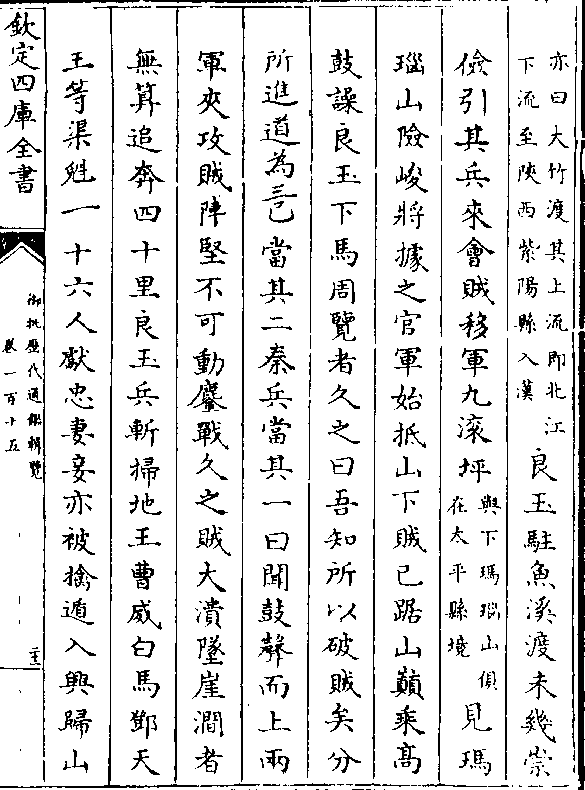 亦曰大竹渡其上流即北江
下流至陜西紫陽縣入漢
良玉駐魚溪渡未幾崇
儉引其兵來會賊移軍九滚坪
與下瑪瑙山俱
在太平縣境
見瑪
瑙山險峻將據之官軍始抵山下賊已踞山巔乘髙
鼓譟良玉下馬周覽者久之曰吾知所以破賊矣分
所進道為三已當其二秦兵當其一曰聞鼓聲而上兩
軍夾攻賊陣堅不可動鏖戰久之賊大潰墜崖澗者
無算追奔四十里良玉兵斬掃地王曹威白馬鄧天
王等渠魁一十六人獻忠妻妾亦被擒遁入興歸山
欽定四庫全書
御批歷代通鑑輯覽
卷一百十五